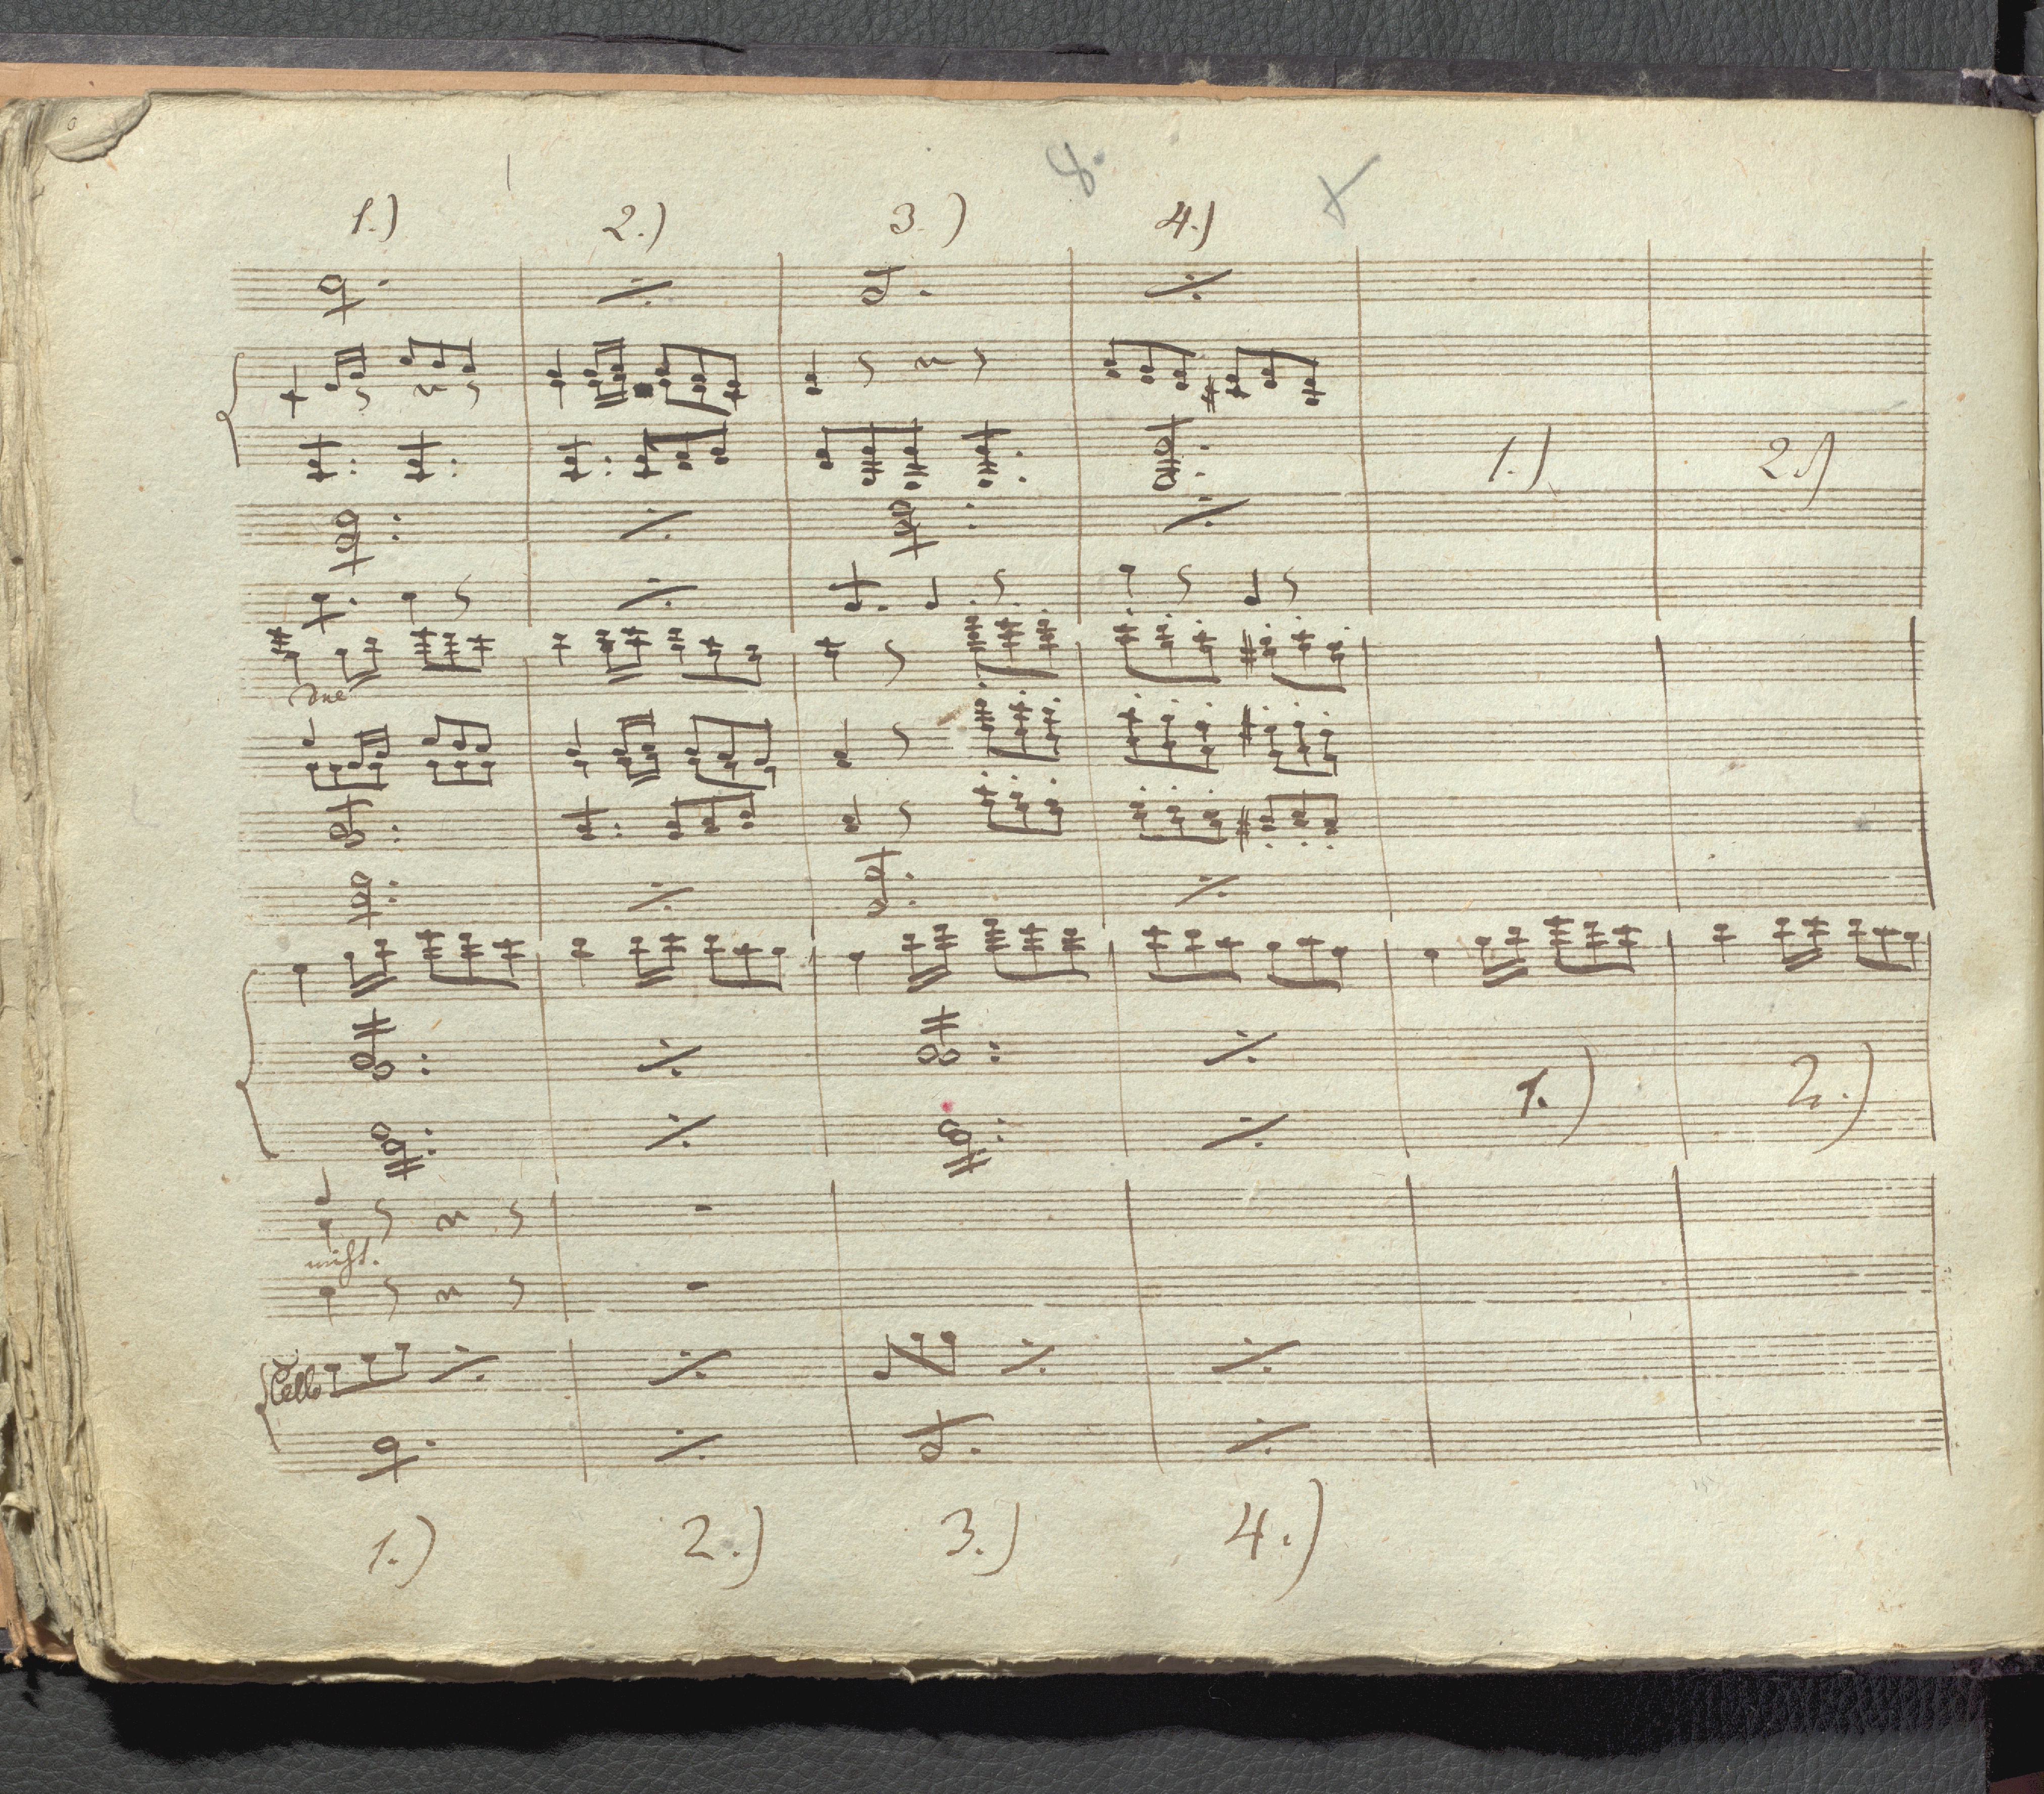 8.
1.) 2.) 3.) 4.)
1.) 2.)
due
1.) 2.)
nicht.
Cello
1.) 2.) 3.) 4.)